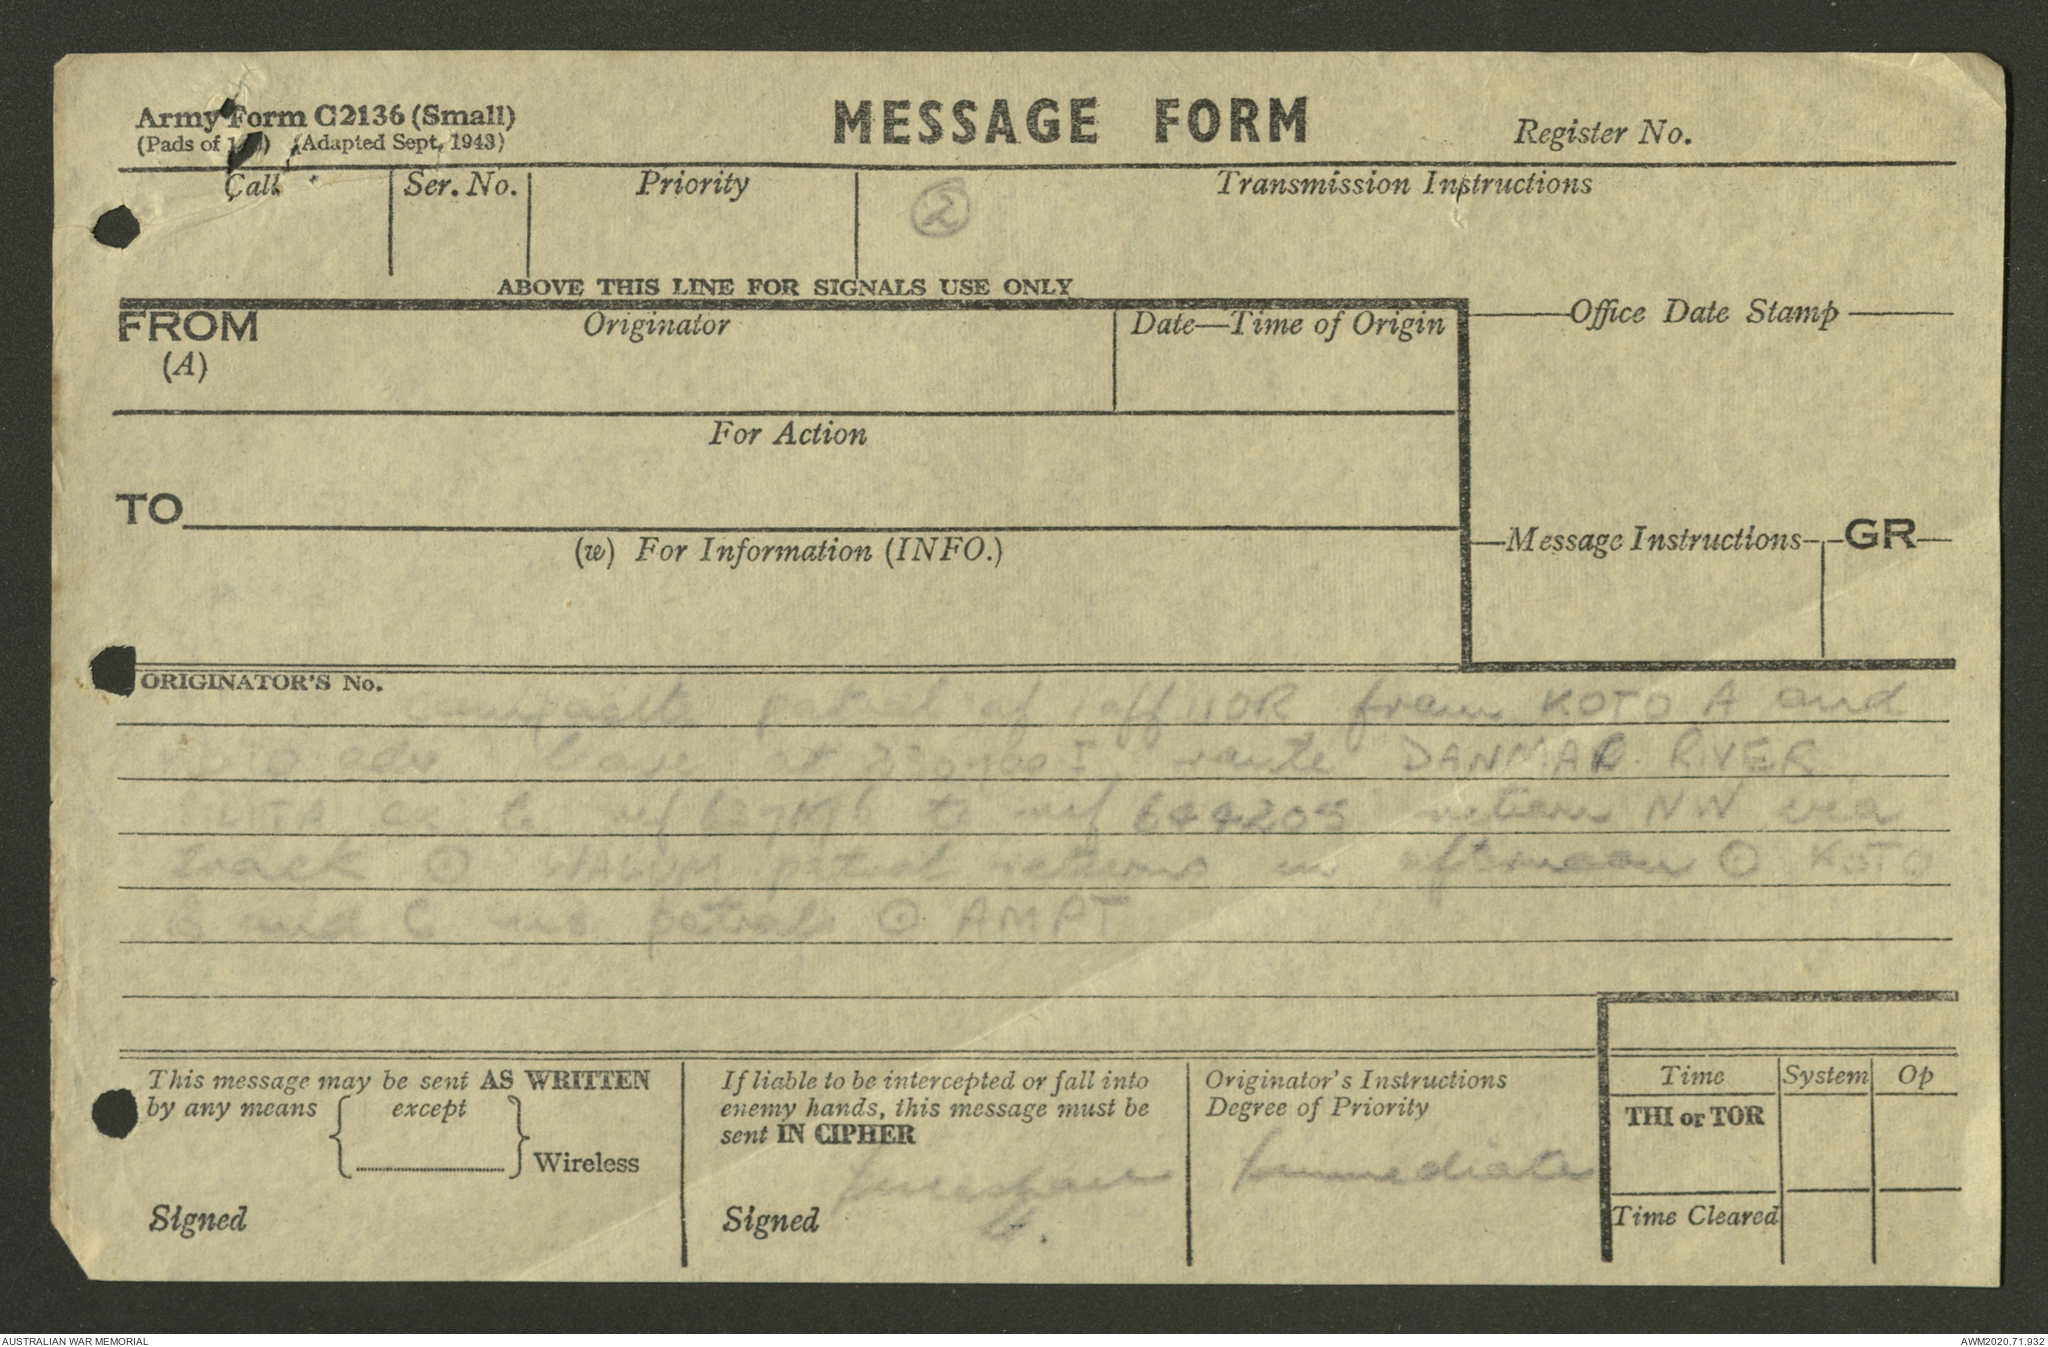 Army Form C2136 (Small)
(Pads of (Adapted Sept. 1943)
MESSAGE FORM
Register No.
Call
Ser. No.
Priority
2
Transmission Instructions
ABOVE THIS LINE FOR SIGNALS USE ONLY
FROM
(A)
Originator
Date—Time of Origin
Office Date Stamp
For Action
TO
(w) For Information (INFO.)
Message Instructions
GR
ORIGINATOR'S No.
patrol of 1 off 11 OR from KOTO A and
adv base at route DANMAP RIVER
to ref to ref 644205 return NW via
track ⊙ patrol returns in afternoon ⊙ KOTO
B and C no patrols ⊙ AMPT
This message may be sent AS WRITTEN
by any means except
Wireless
Signed
If liable to be intercepted or fall into
enemy hands, this message must be
sent IN CIPHER
Signed
Originator's Instructions
Degree of Priority
Immediate
Time System Op
THI or TOR
Time Cleared
AUSTRALIAN WAR MEMORIAL
AWM2020.71.932